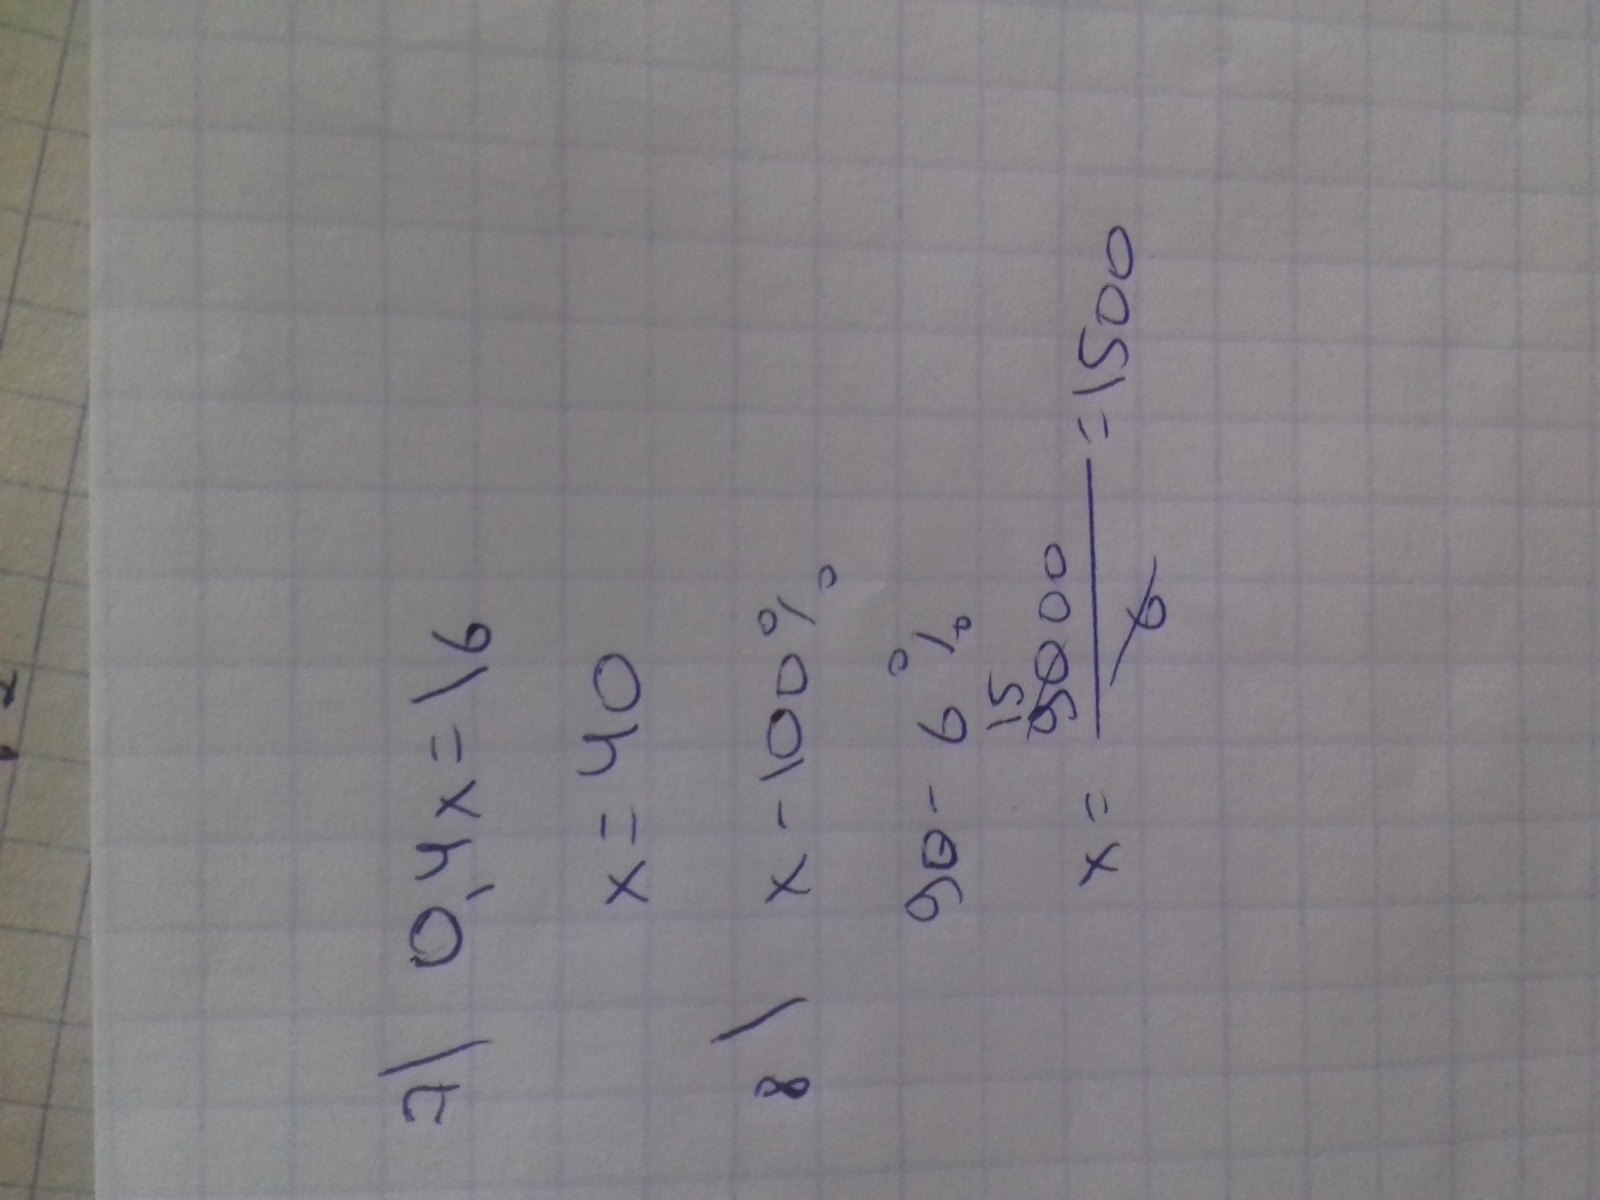 7) 0,4x=16
x=40
8) x-100%
90-6%
15
x= 9000/6 =1500